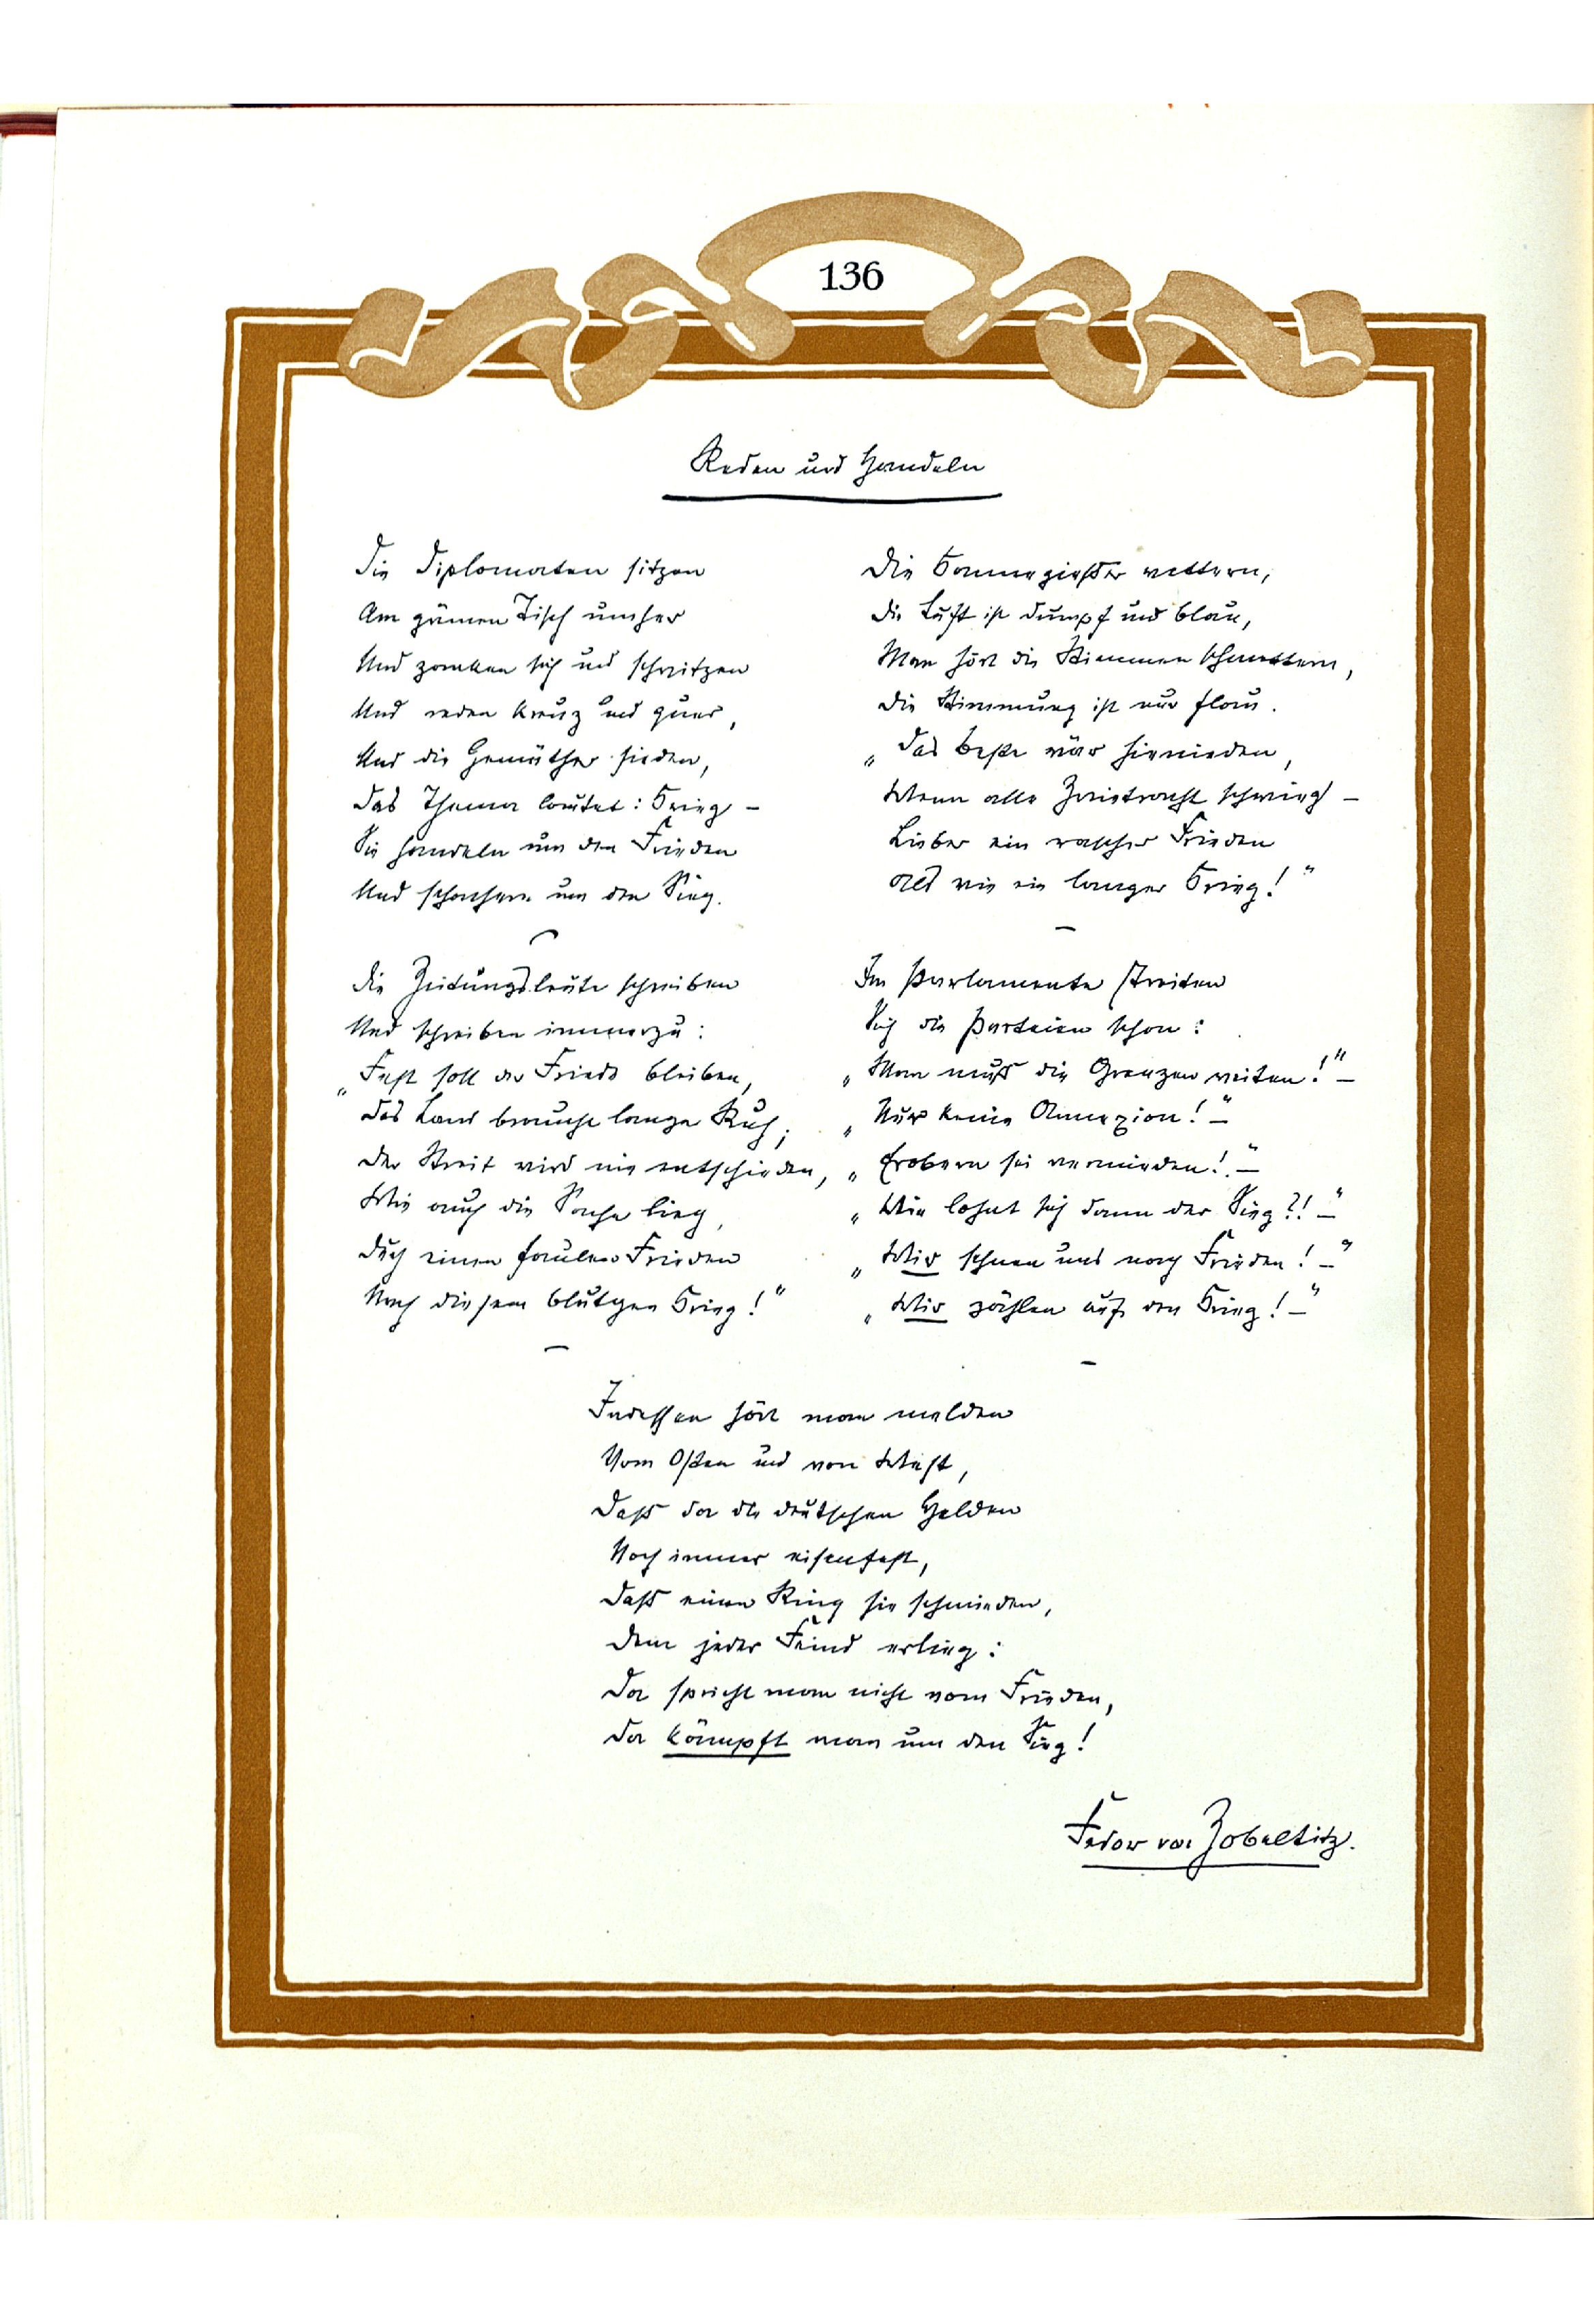 136
Reden und Handeln
Die Diplomaten sitzen
Am grünen Tisch umher
Und zanken sich und schwitzen
Und reden kreuz und quer,
Und die Gemüther sieden,
Das Thema lautet: Krieg –
Sie handeln um den Frieden
Und schachern um den Sieg.
Die Zeitungsleute schreiben
Und schreiben immerzu:
„Fest soll der Friede bleiben,
Das Land braucht lange Ruh;
Der Streit wird nie entschieden,
Wie auch die Sache lieg,
Durch einen faulen Frieden
Nach diesem blutgen Krieg!"
Die Kannegießer wettern,
Die Luft ist dumpf und blau,
Man hört die Stimmen schmettern,
Die Stimmung ist nur flau.
„Das beste wär hienieden,
Wenn alle Zwietracht schwieg –
Lieber ein rascher Frieden
Als wie ein langer Krieg!"
Im Parlamente streiten
Sich die Parteien schon:
„Man muß die Grenzen weiten!" –
„Nur keine Annexion!" –
„Erobern sei vermieden!" –
„Wie lohnt sich dann der Sieg?!" –
„Wir sehnen uns nach Frieden!" –
„Wir zählen auf den Krieg!" –
Indessen hört man melden
Vom Osten und von West,
Daß da die deutschen Helden
Noch immer eisenfest,
Daß einen Ring sie schmieden,
Dem jeder Feind erlieg:
Da spricht man nicht vom Frieden,
Da kämpft man um den Sieg!
Fedor von Zobeltitz.